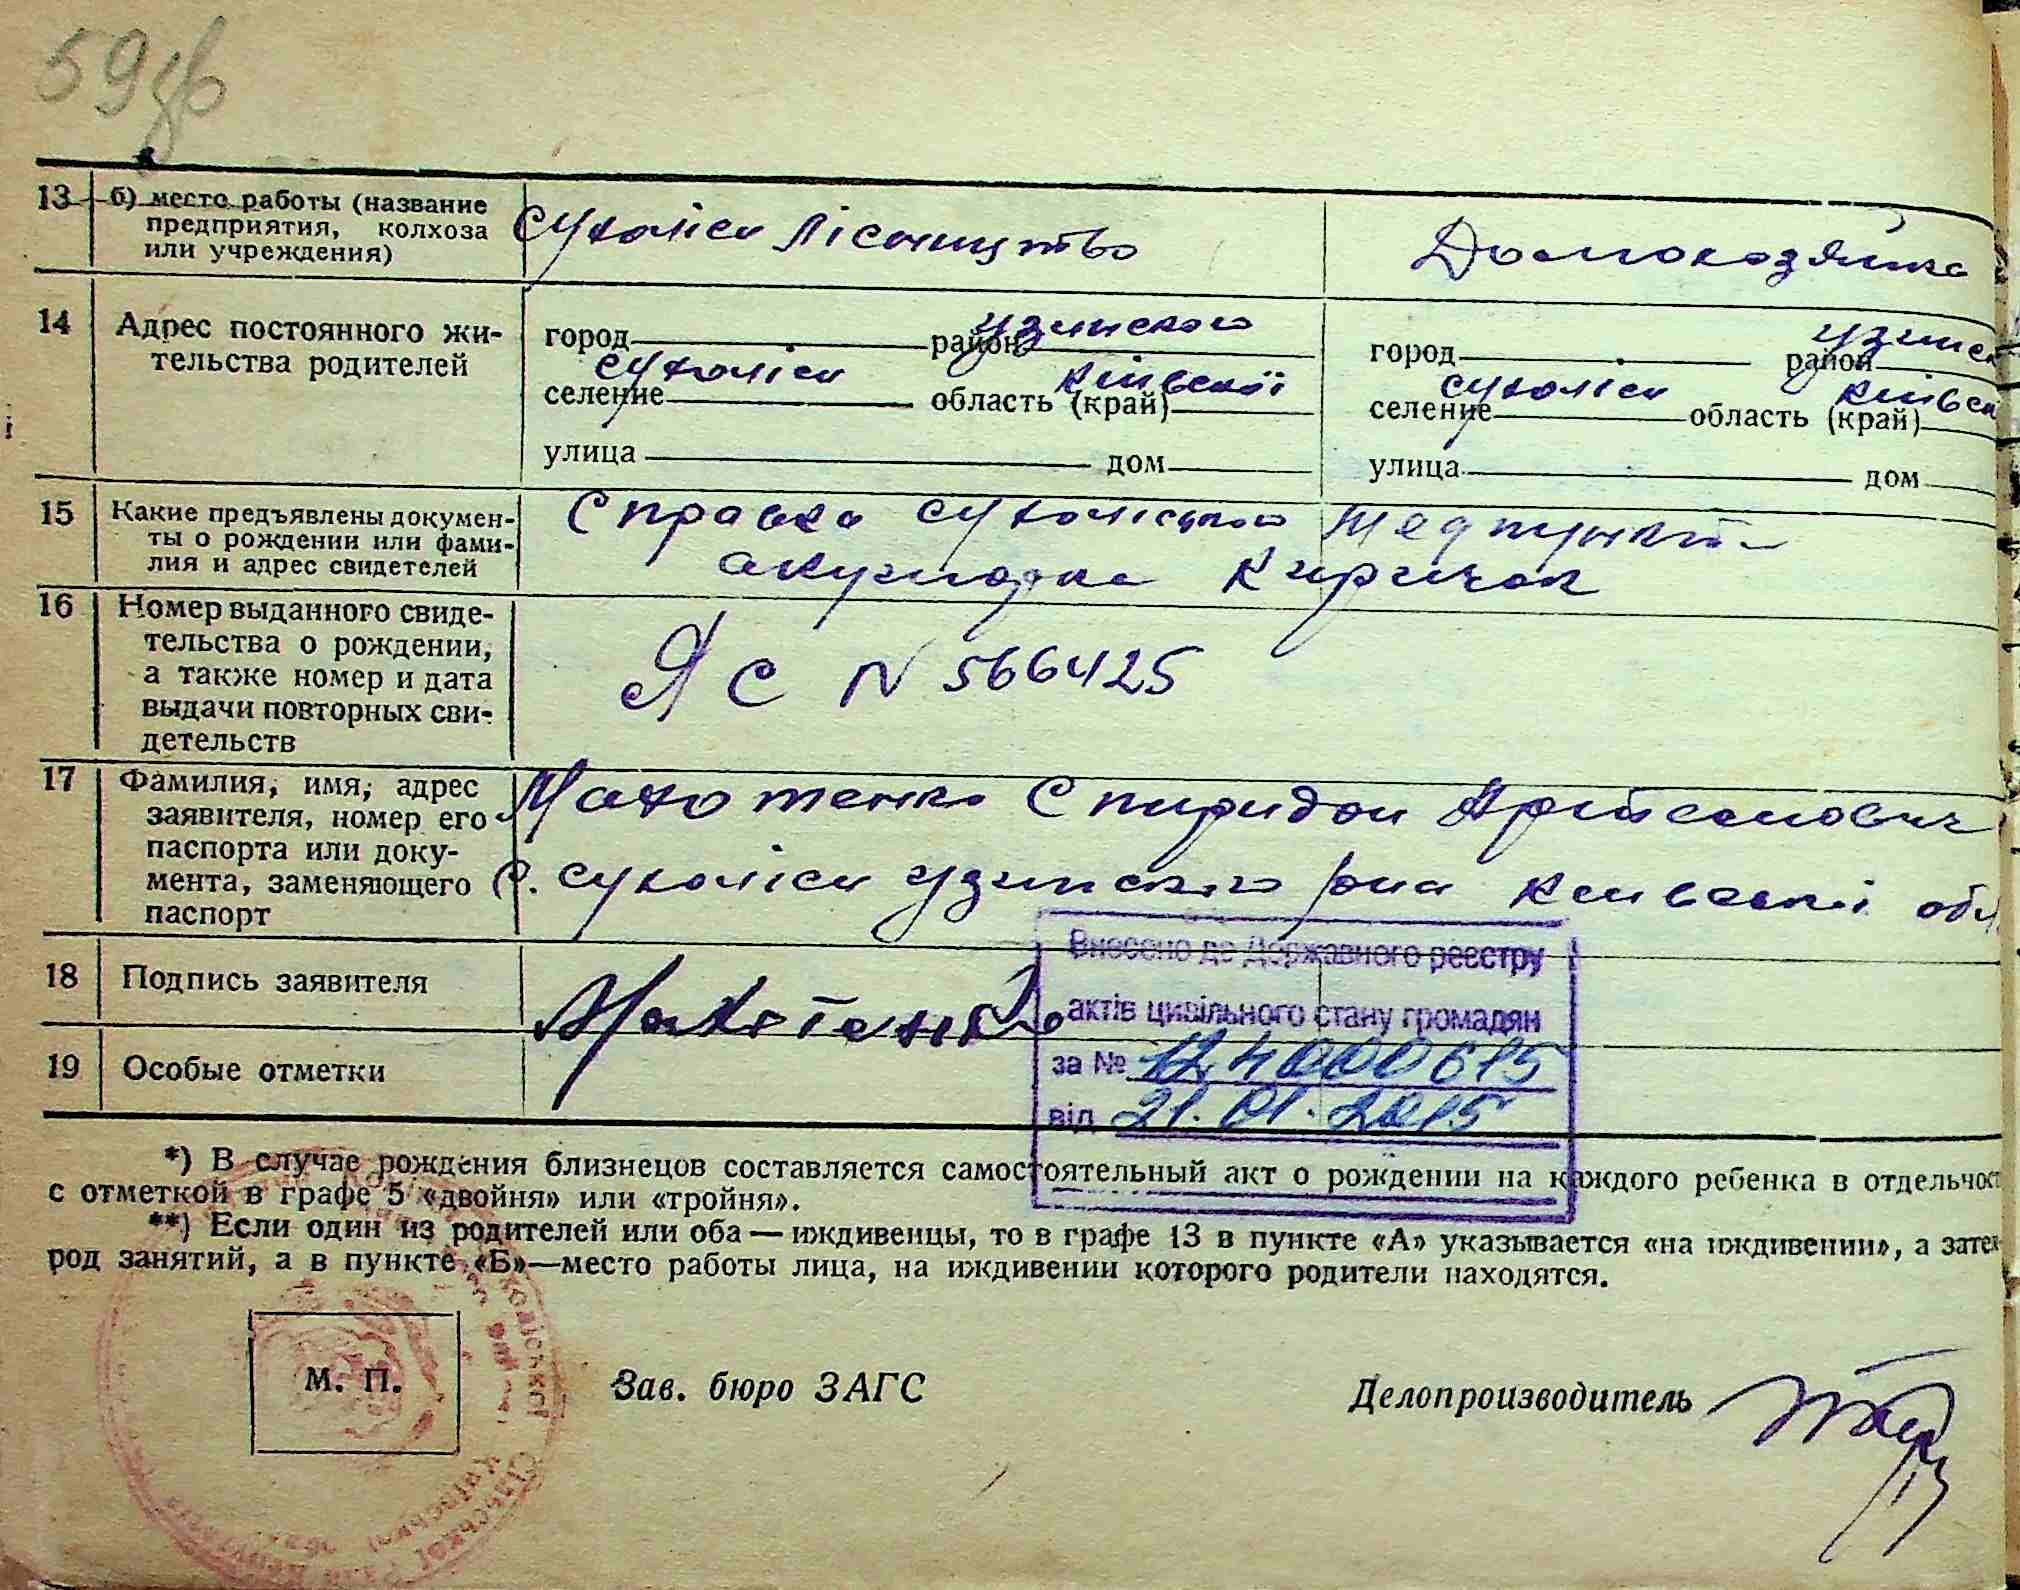 59зв
13 б) место работы (название предприятия, колхоза или учреждения) Сухоліси лісництво Домохозяйка
14 Адрес постоянного жительства родителей
город район узинского город район узинск
селение сухоліси область (край) київскої селение сухоліси область (край) київск
улица дом улица дом
15 Какие предъявлены документы о рождении или фамилия и адрес свидетелей Справка сухоліського медпункта
акушорка Киричок
16 Номер выданного свидетельства о рождении, а также номер и дата выдачи повторных свидетельств ЯС N 566425
17 Фамилия, имя, адрес заявителя, номер его паспорта или документа, заменяющего паспорт Махотенко Спиридон Артемович
с. сухоліси узинского рна київскої обл
18 Подпись заявителя Махотенко
19 Особые отметки
Внесено до Державного реєстру
актів цивільного стану громадян
за №
від 21.01.2015
*) В случае рождения близнецов составляется самостоятельный акт о рождении на каждого ребенка в отдельност
с отметкой в графе 5 «двойня» или «тройня».
**) Если один из родителей или оба — иждивенцы, то в графе 13 в пункте «А» указывается «на иждивении», а зате
род занятий, а в пункте «Б»—место работы лица, на иждивении которого родители находятся.
М. П. Зав. бюро ЗАГС Делопроизводитель